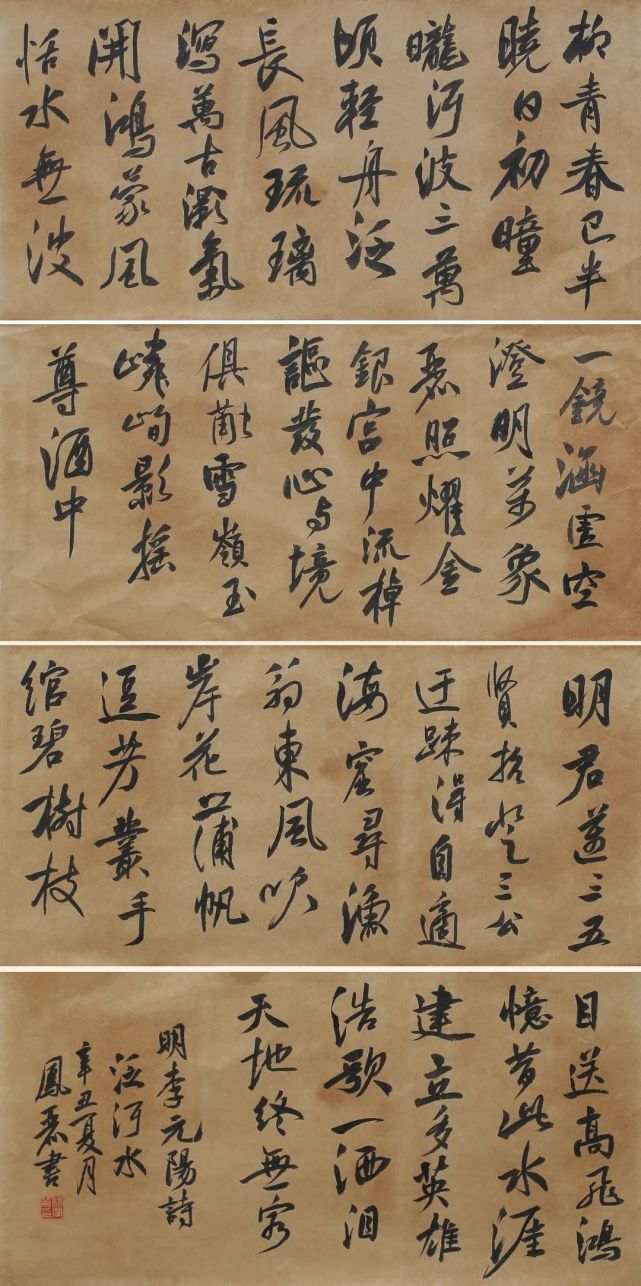 柳青春已半
曉日初曈
曨洱波三萬
頃輕舟泛
長風琉璃
瀉萬古灝氣
開鴻蒙風
恬水無波
一鏡涵虛空
澄明万象
麗照耀金
銀宮中流棹
謳發心与境
俱融雪嶺玉
嶙峋影搖
尊酒中
明君邁三五
賢哲登三公
迂疎得自適
海窟尋漁
翁東風吹
岸花蒲帆
逗芳叢手
綰碧樹枝
目送高飛鴻
憶昔此水涯
建立多英雄
浩歌一洒泪
天地終無窮
明李元陽詩
泛洱水
辛丑夏月
鳳麗書